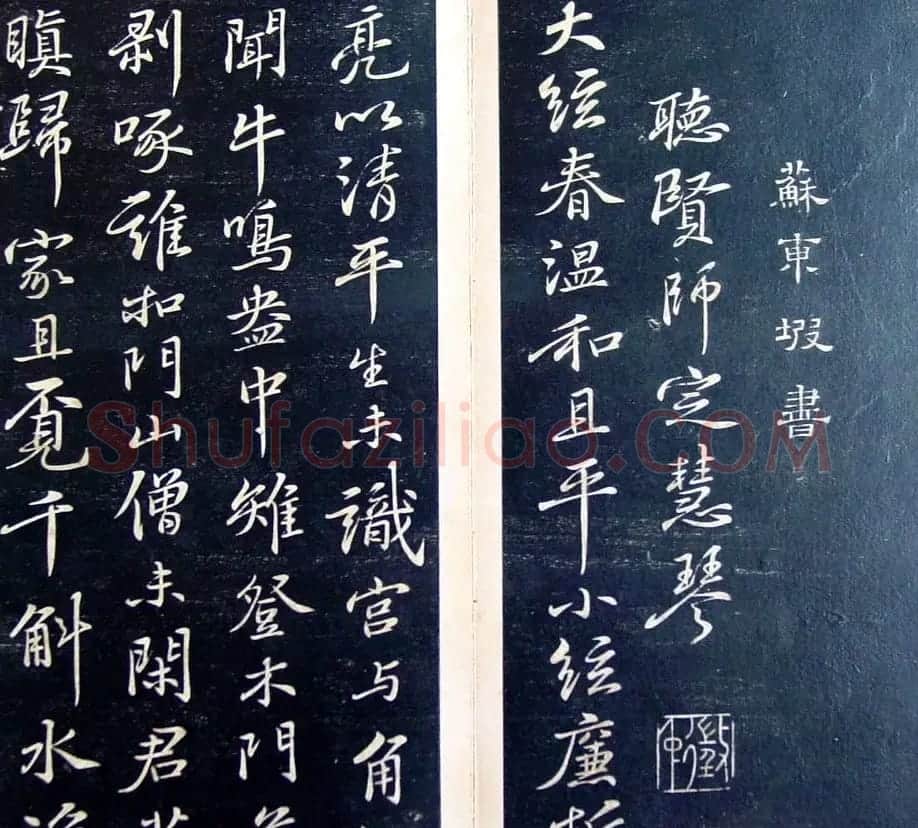 蘇東坡書
聴賢師定慧琴
大絃春温和且平小絃廉
亮以清平生未識宫与角
聞牛鳴盎中雉登木門
剥啄誰扣門山僧未閑君
瞋歸家且覔千斛水
Shufaziliao.COM